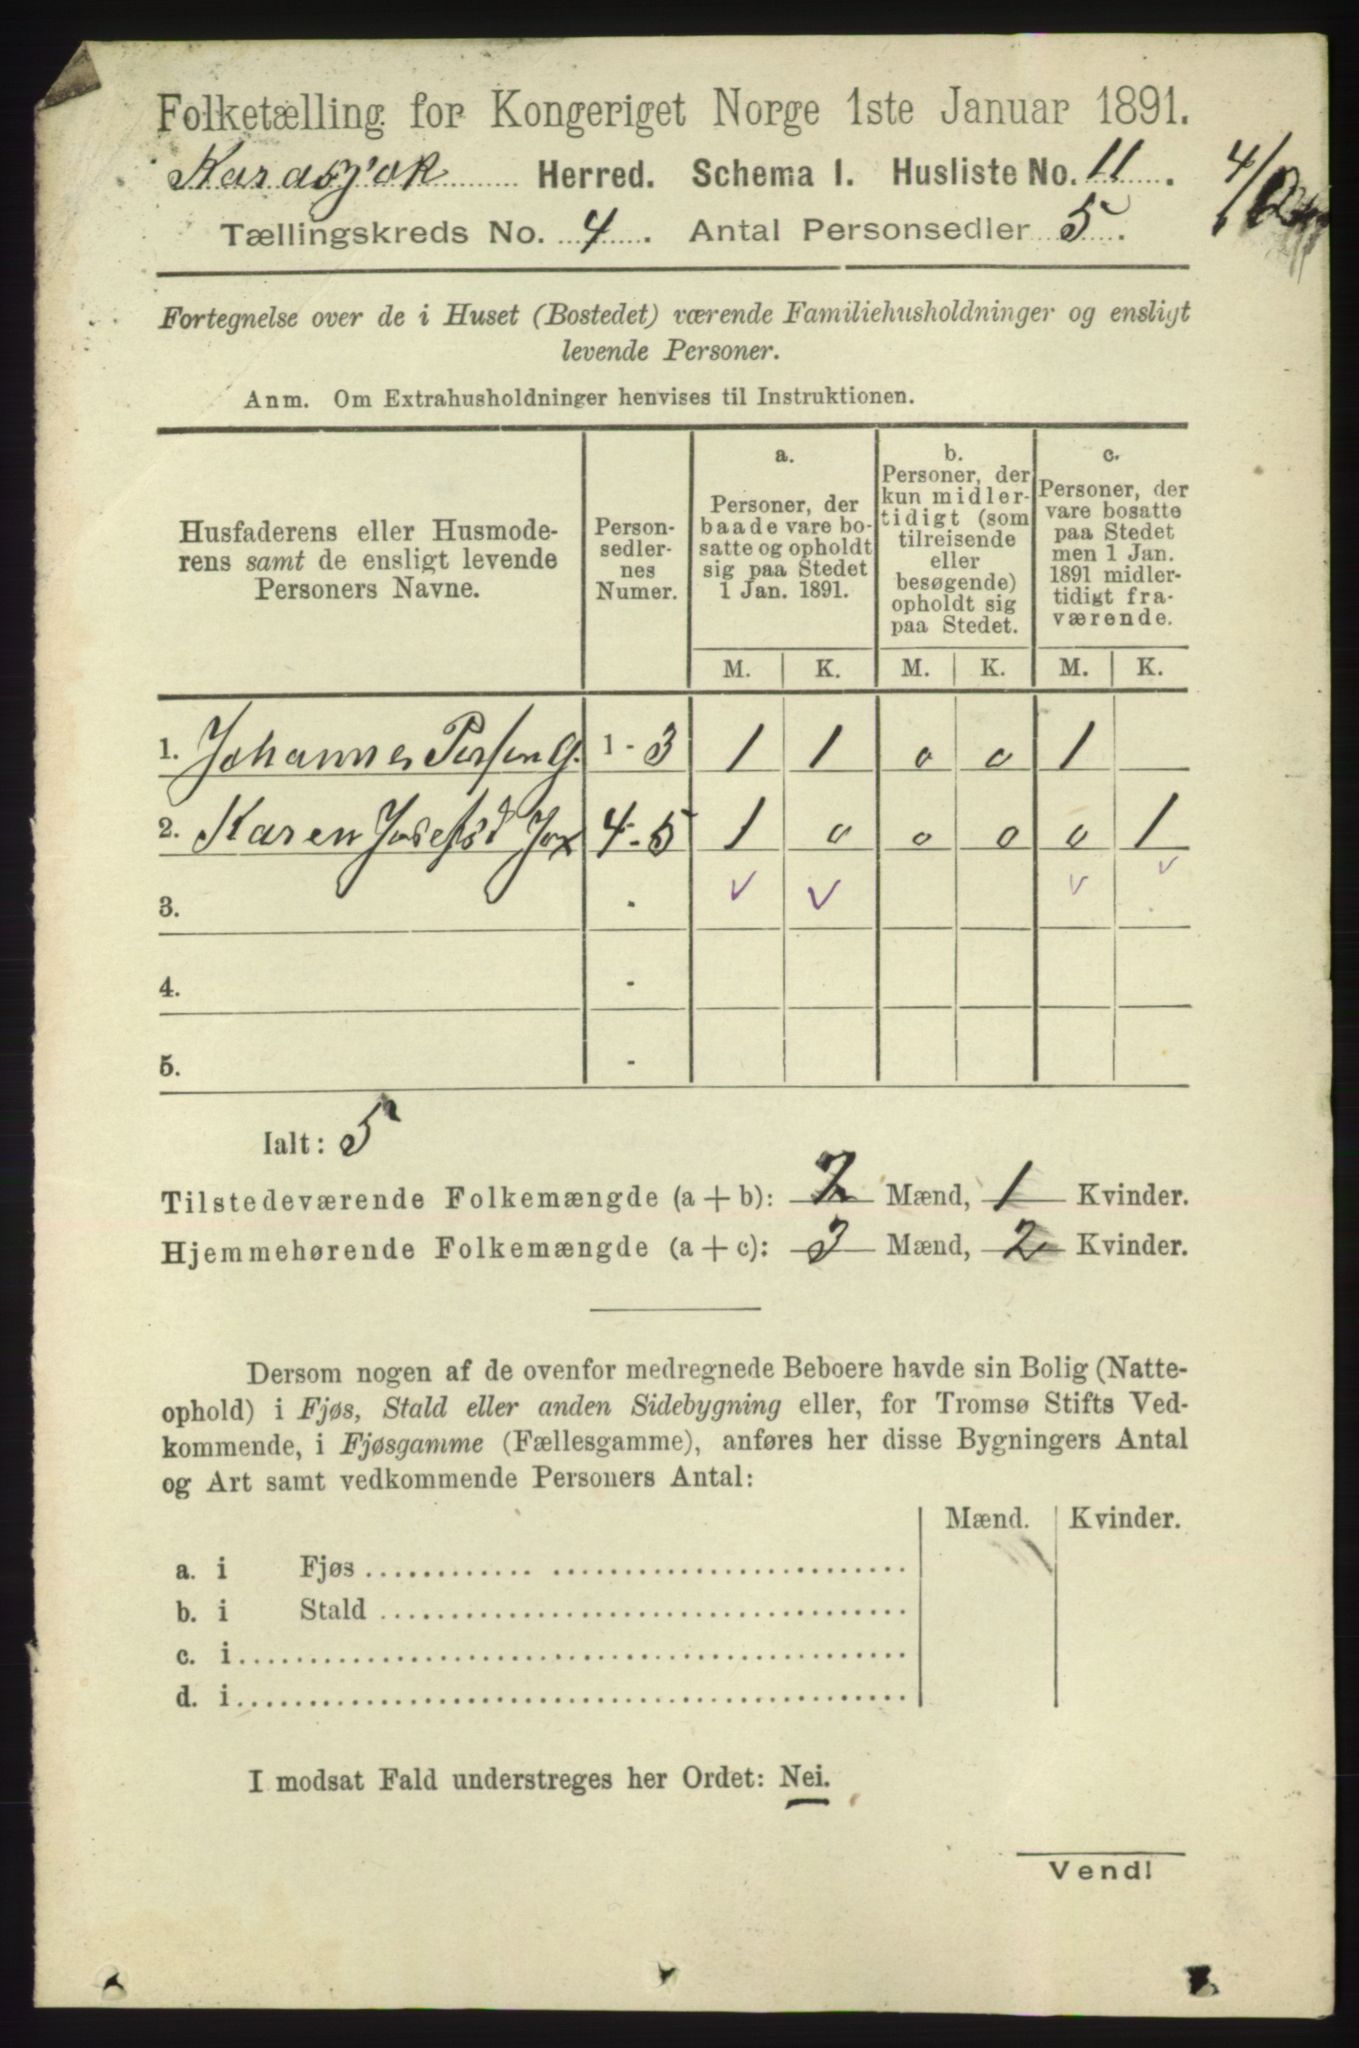 Folketælling for Kongeriget Norge 1ste Januar 1891.
Karasjok Herred. Schema I. Husliste No. 11.
Tællingskreds No. 4. Antal Personsedler 5.
Fortegnelse over de i Huset (Bostedet) værende Familiehusholdninger og ensligt
levende Personer.
Anm. Om Extrahusholdninger henvises til Instruktionen.
Husfaderens eller Husmode-
rens samt de ensligt levende
Personers Navne.
Person-
sedler-
nes
Numer.
a.
Personer, der
baade vare bo-
satte og opholdt
sig paa Stedet
1 Jan. 1891.
b.
Personer, der
kun midler-
tidigt (som
tilreisende
eller
besøgende)
opholdt sig
paa Stedet.
c.
Personer, der
vare bosatte
paa Stedet
men 1 Jan.
1891 midler-
tidigt fra-
værende.
M. K. M. K. M. K.
1. Johannes Persen G. 1-3 1 1 0 0 1
2. Karen Josefsd Jox 4-5 1 0 0 0 0 1
3. -
4. -
5. -
Ialt: 5
Tilstedeværende Folkemængde (a + b): 2 Mænd, 1 Kvinder.
Hjemmehørende Folkemængde (a + c): 3 Mænd, 2 Kvinder.
Dersom nogen af de ovenfor medregnede Beboere havde sin Bolig (Natte-
ophold) i Fjøs, Stald eller anden Sidebygning eller, for Tromsø Stifts Ved-
kommende, i Fjøsgamme (Fællesgamme), anføres her disse Bygningers Antal
og Art samt vedkommende Personers Antal:
Mænd. Kvinder.
a. i Fjøs
b. i Stald
c. i
d. i
I modsat Fald understreges her Ordet: Nei.
Vend!